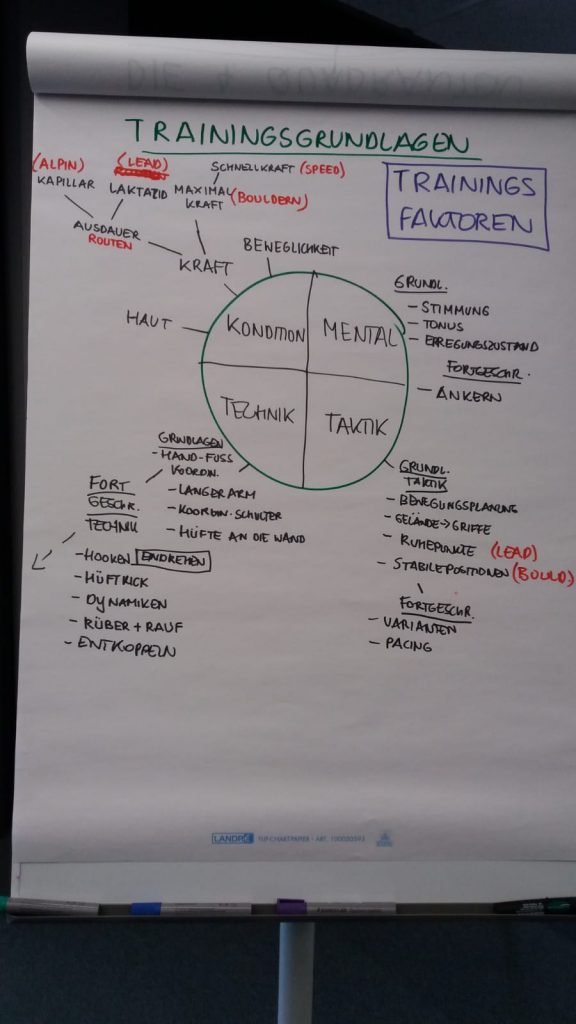 TRAININGSGRUNDLAGEN
TRAININGS
FAKTOREN
(ALPIN)
KAPILLAR
(LEAD)
LAKTAZID
SCHNELLKRAFT (SPEED)
MAXIMAL
KRAFT (BOULDERN)
AUSDAUER
ROUTEN
KRAFT
BEWEGLICHKEIT
HAUT
KONDITION
MENTAL
TECHNIK
TAKTIK
GRUNDL.
- STIMMUNG
- TONUS
- ERREGUNGSZUSTAND
FORTGESCHR.
- ANKERN
GRUNDLAGEN
- HAND-FUSS
KOORDIN.
- LANGER ARM
- KOORDIN. SCHULTER
- HÜFTE AN DIE WAND
FORT
GESCHR.
TECHNIK
- HOOKEN EINDREHEN
- HÜFTKICK
- DYNAMIKEN
- RÜBER + RAUF
- ENTKOPPELN
GRUNDL.
TAKTIK
- BEWEGUNGSPLANUNG
- GELÄNDE → GRIFFE
- RUHEPUNKTE (LEAD)
- STABILE POSITIONEN (BOULD)
FORTGESCHR.
- VARIANTEN
- PACING
LANDRÉ